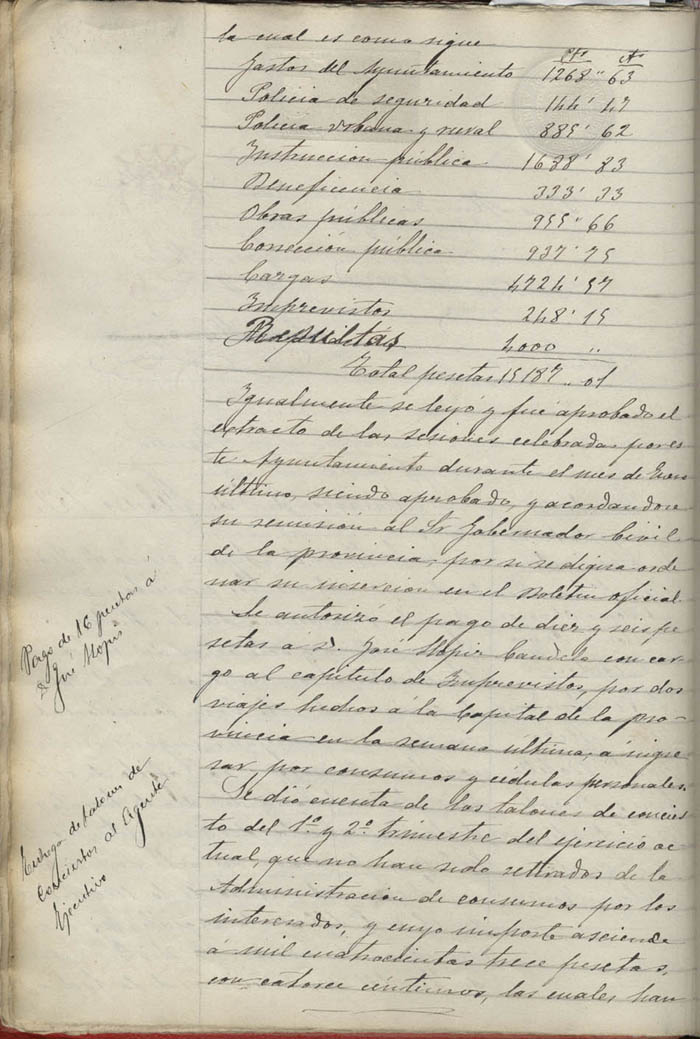 la cual es como sigue
Pts Cts
Gastos del Ayuntamiento 1268 " 63
Policia de seguridad 144 ' 47
Policia urbana y rural 885 ' 62
Instruccion pública 1688 ' 83
Beneficencia 333 ' 33
Obras públicas 955 " 66
Corrección pública 937 ' 75
Cargas 4724 ' 57
Imprevistos 248 ' 15
Resultas 4000 "
Total pesetas 15187 .. 01
Igualmente se leyó y fué aprobado el
extracto de las sesiones celebradas por es
te Ayuntamiento durante el mes de Enero
último, siendo aprobado, y acordandose
su remisión al Sr Gobernador Civil
de la provincia, por si se digna orde
nar su insercion en el Boletin oficial
Se autorizó el pago de diez y seis pe
setas á D. José Mopis Candela con car
go al capitulo de Imprevistos, por dos
viajes hechos á la Capital de la pro-
vincia en la semana última, á ingre
sar por consumos y cédulas personales.
Se dió cuenta de los talones de concier
to del 1º y 2º trimestre del ejercicio ac
tual, que no han sido retirados de la
Administracion de consumos por los
interesados, y cuyo importe asciende
á mil cuatrocientas trece pesetas,
con catorce céntimos, las cuales han
Pago de 16 pesetas á
D José Mopis
Entrega de talones de
Conciertos al Agente
Ejecutivo